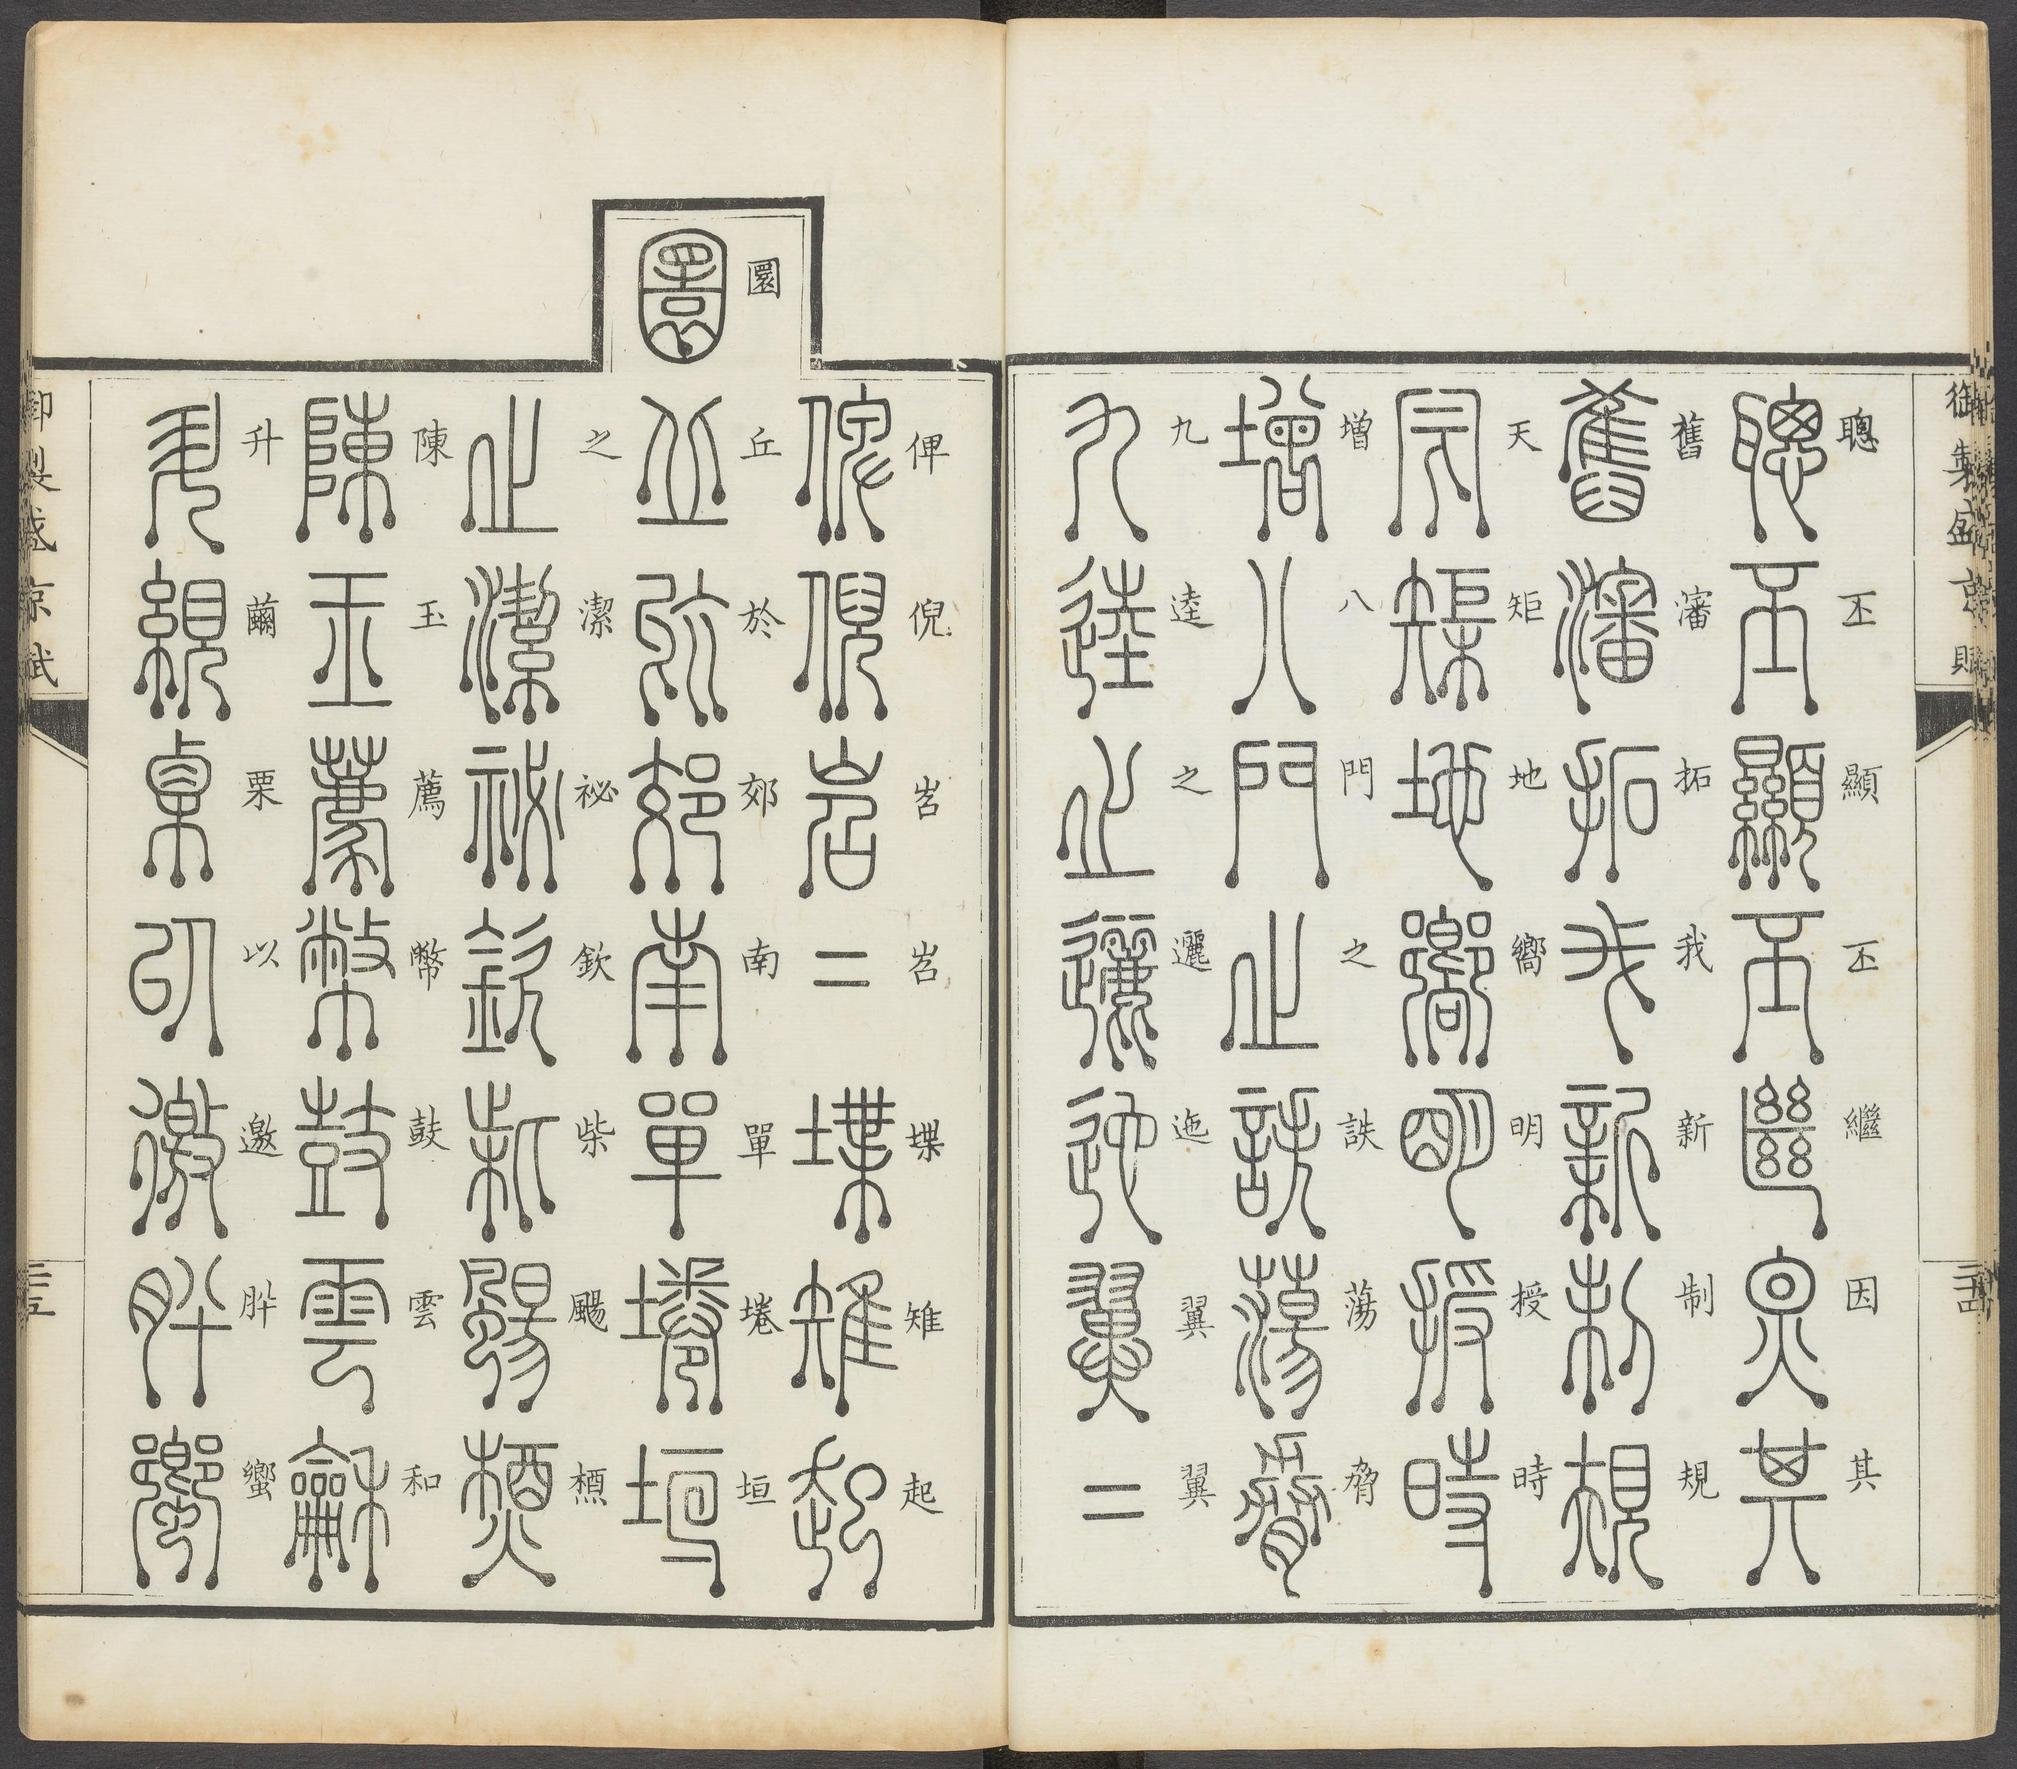 御製盛京賦
聰丕顯丕繼因其
舊瀋拓我新制規
天矩地嚮明授時
增八門之詄蕩脅
九逵之邐迤翼翼
二十四
俾倪岧岧堞雉起
圜丘於郊南單墧垣
之潔祕欽柴颺槱
陳玉薦幣鼓雲和
升繭栗以邀肸蠁
御製盛京賦
二十五